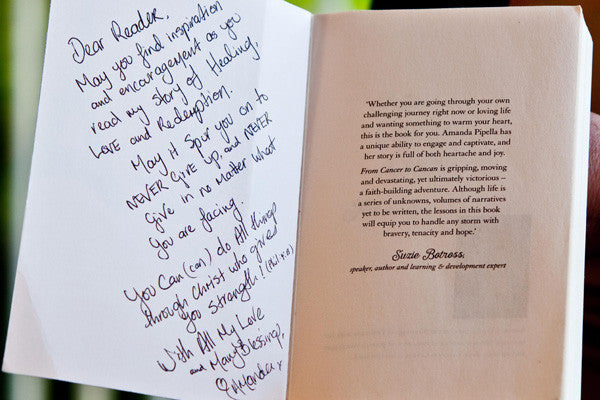 Dear Reader,
May you find inspiration
and encouragement as you
read my story of Healing,
LOVE and Redemption.
May it spur you on to
NEVER Give Up, and NEVER
Give in no Matter what
you are facing.
You Can(can) do All things
through Christ who gives
you strength! (Phil 4:13)
With All My Love
and Many Blessings,
Amanda x
'Whether you are going through your own
challenging journey right now or loving life
and wanting something to warm your heart,
this is the book for you. Amanda Pipella has
a unique ability to engage and captivate, and
her story is full of both heartache and joy.
From Cancer to Cancan is gripping, moving
and devastating, yet ultimately victorious –
a faith-building adventure. Although life is
a series of unknowns, volumes of narratives
yet to be written, the lessons in this book
will equip you to handle any storm with
bravery, tenacity and hope.'
Suzie Botross,
speaker, author and learning & development expert